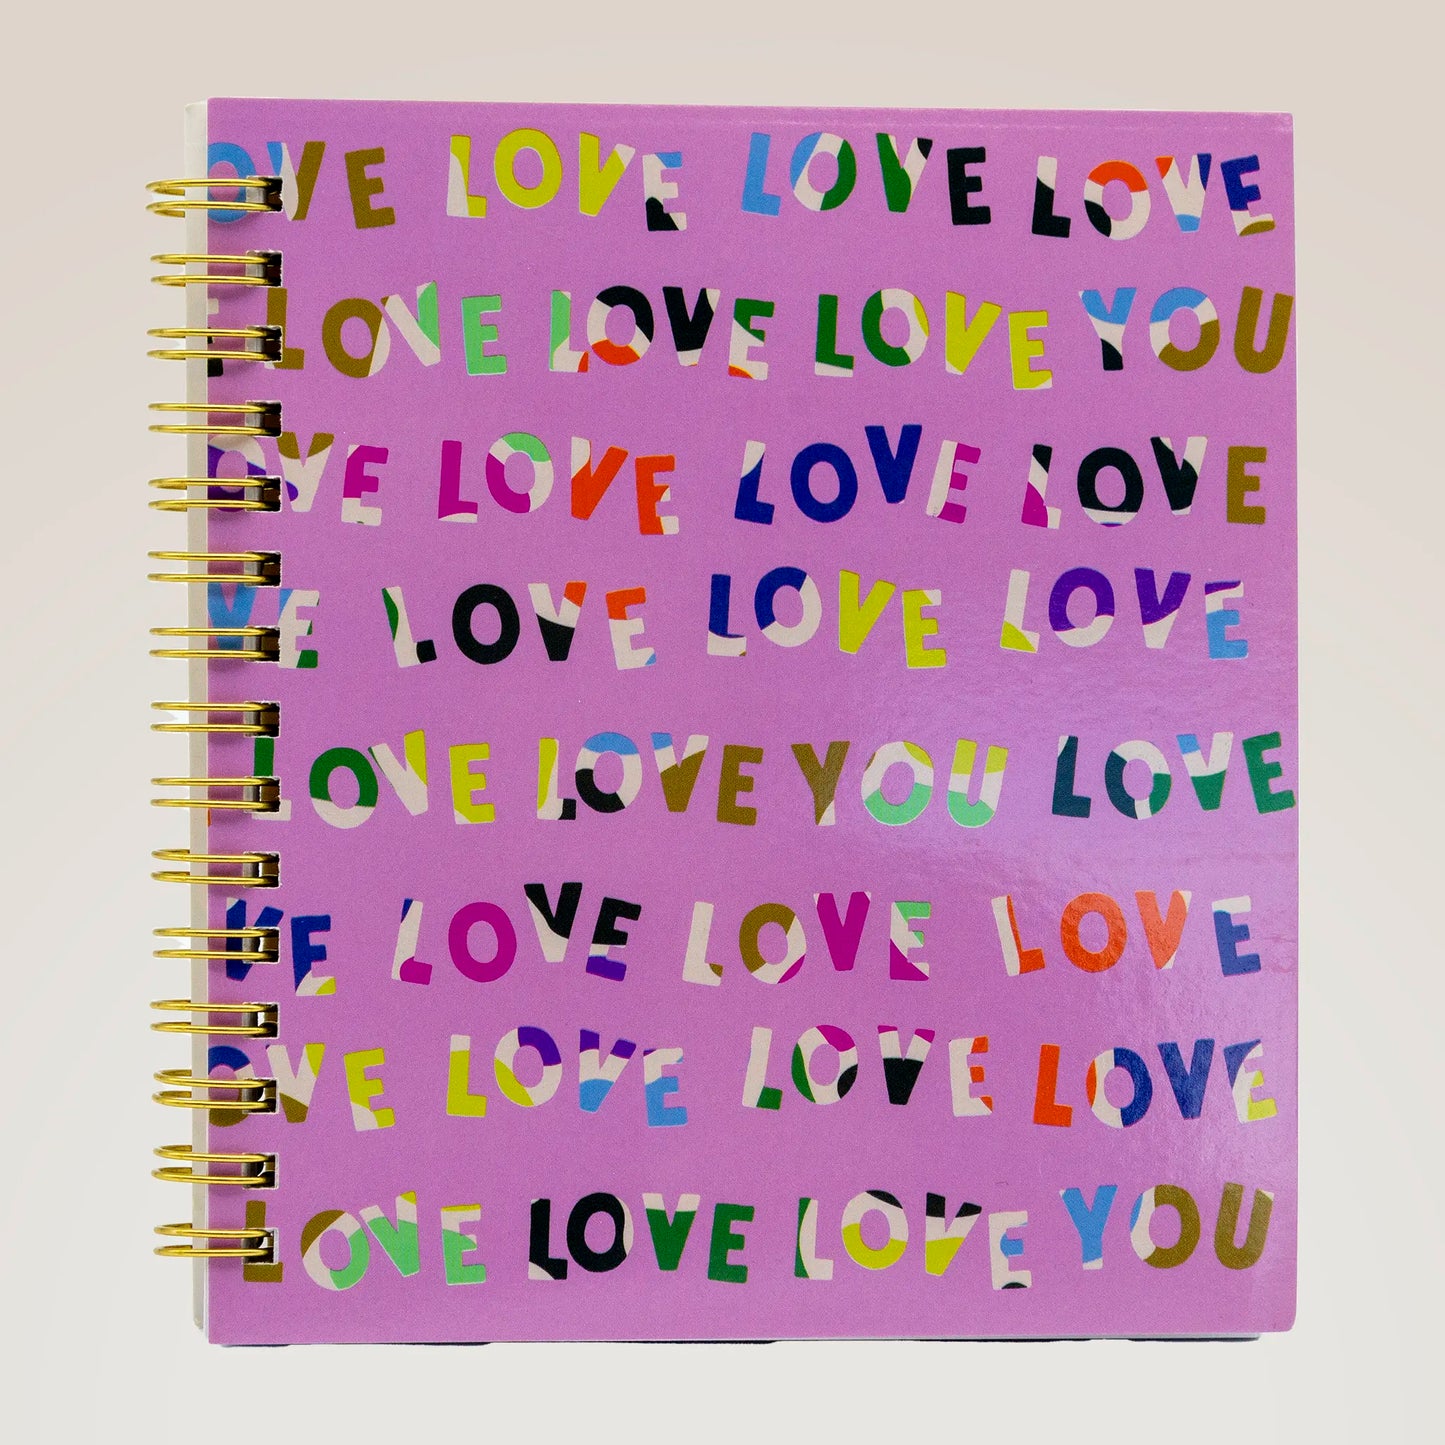 OVE LOVE LOVE LOVE
E LOVE LOVE LOVE YOU
OVE LOVE LOVE LOVE
VE LOVE LOVE LOVE
LOVE LOVE YOU LOVE
VE LOVE LOVE LOVE
OVE LOVE LOVE LOVE
LOVE LOVE LOVE YOU